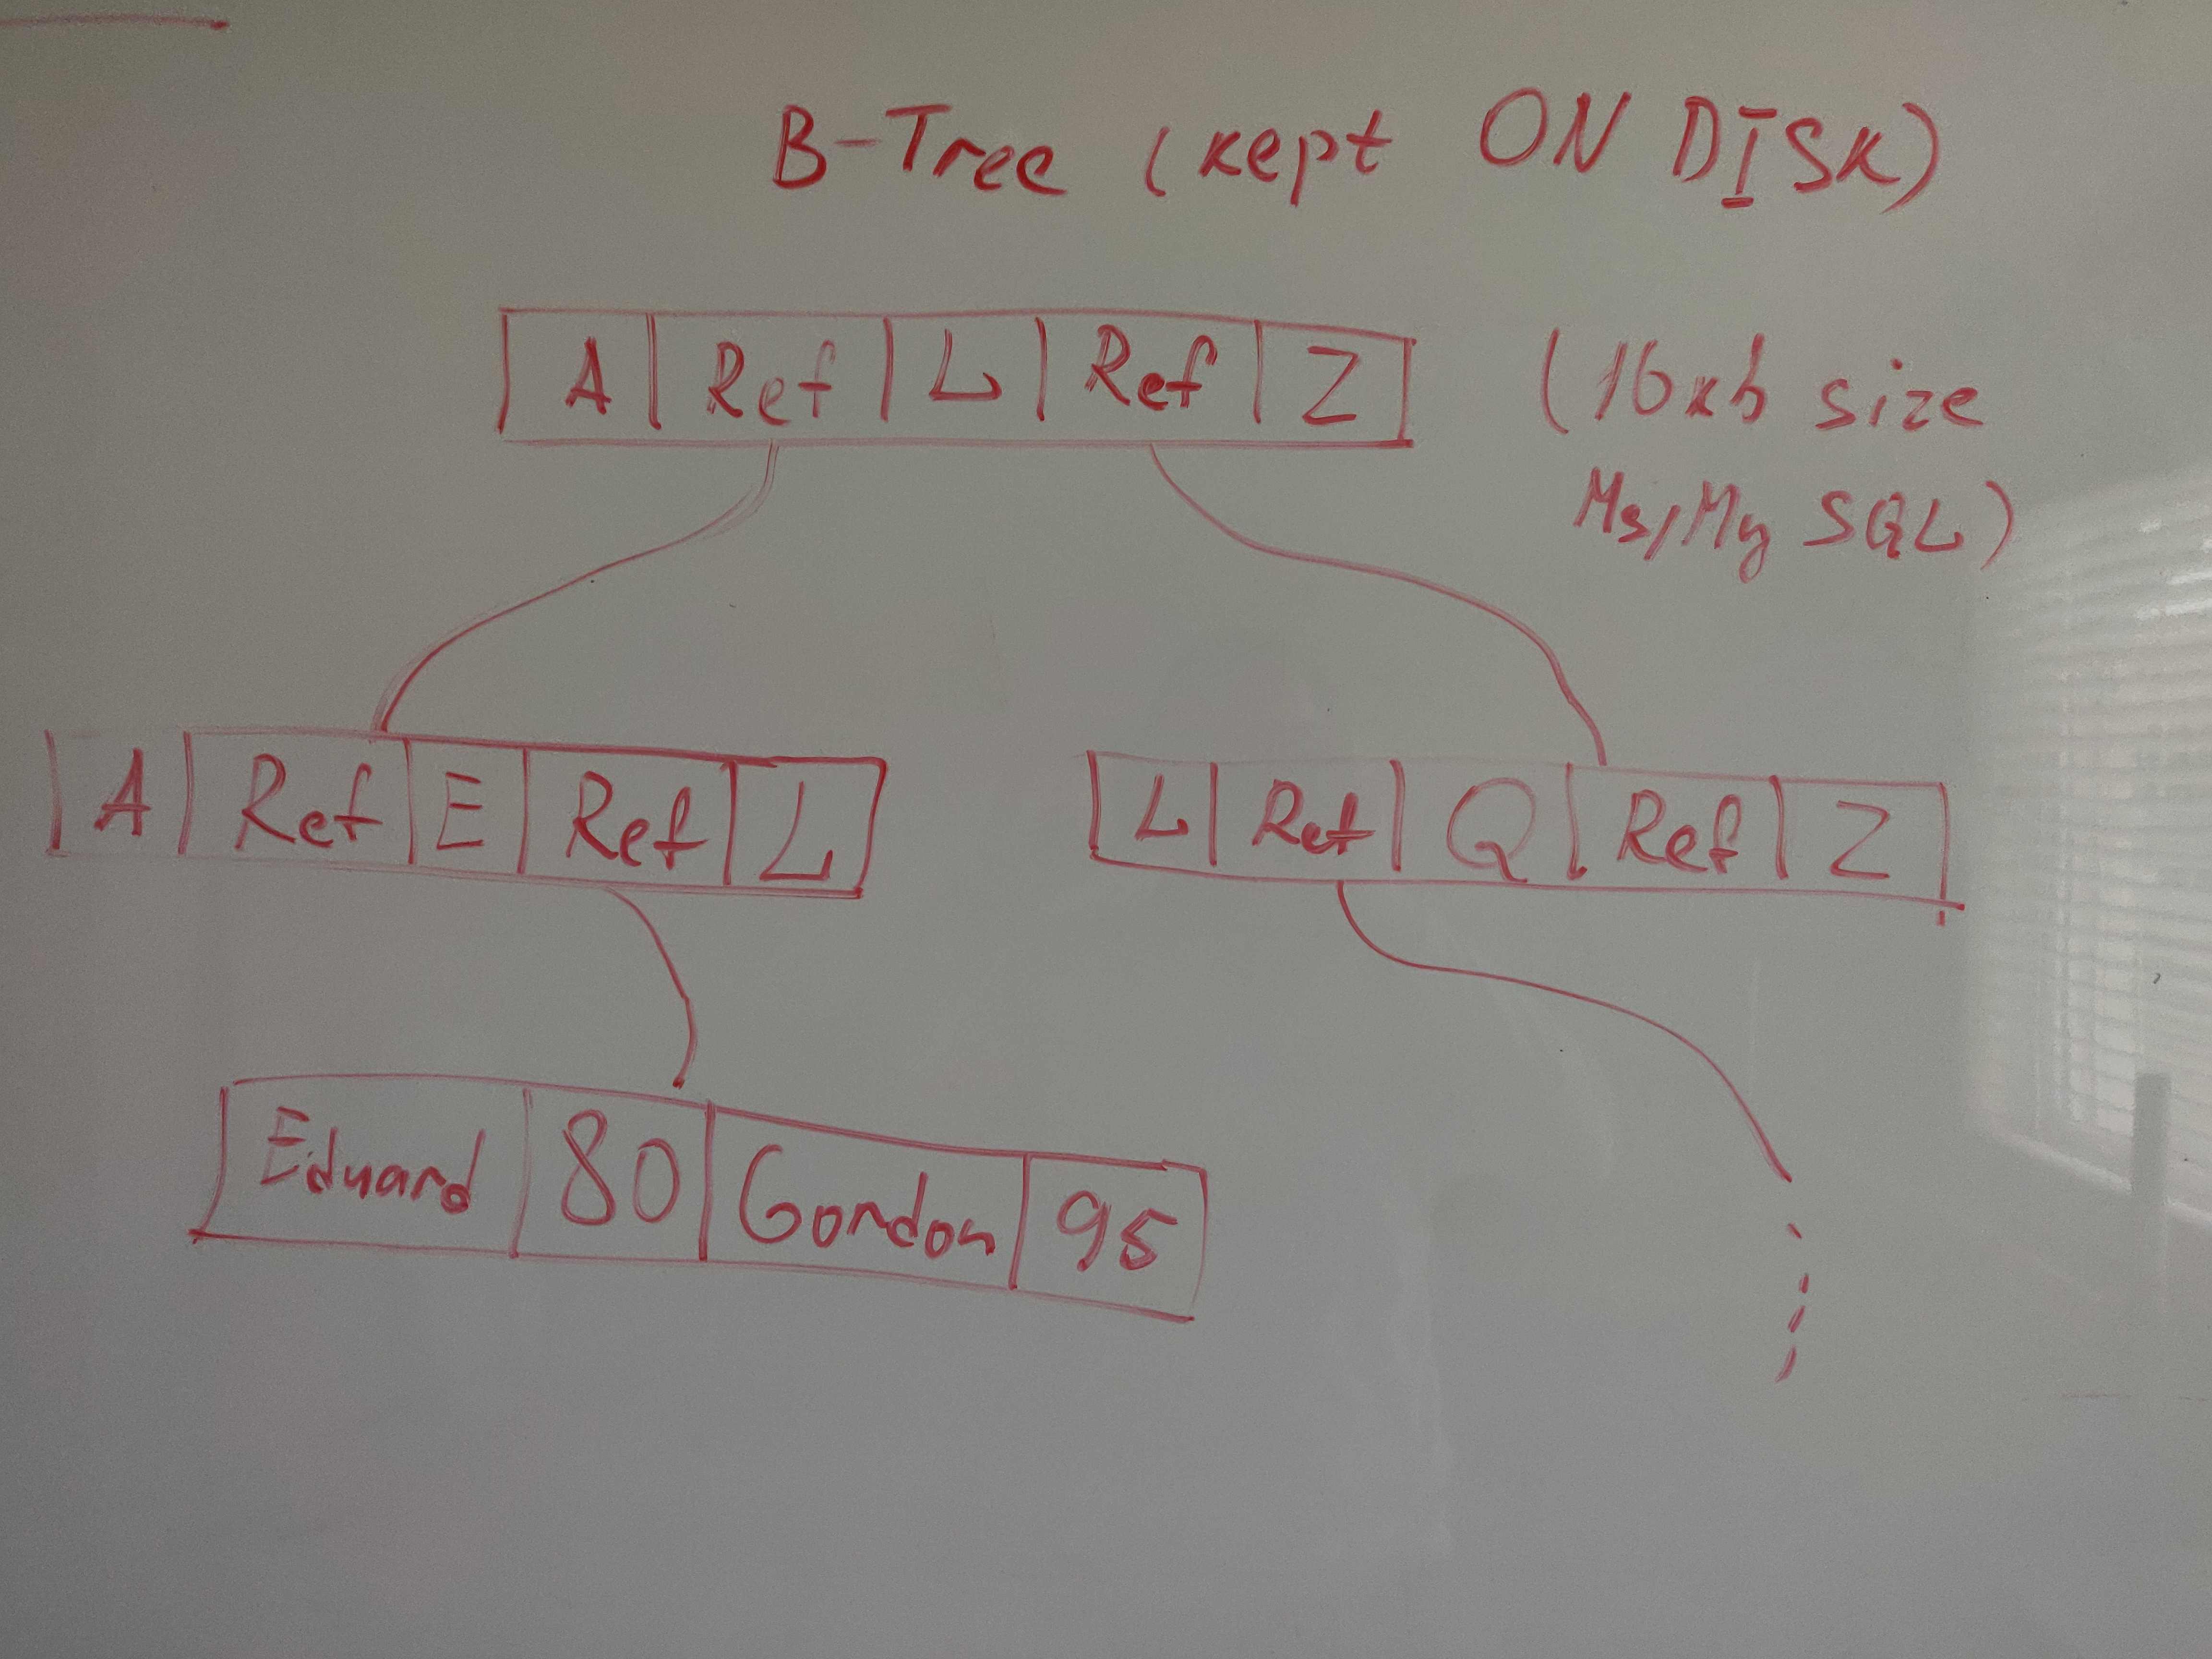 B-Tree (kept ON DISK)
A Ref L Ref Z
(16kb size
Ms/My SQL)
A Ref E Ref L
L Ref Q Ref Z
Eduard 80 Gordon 95